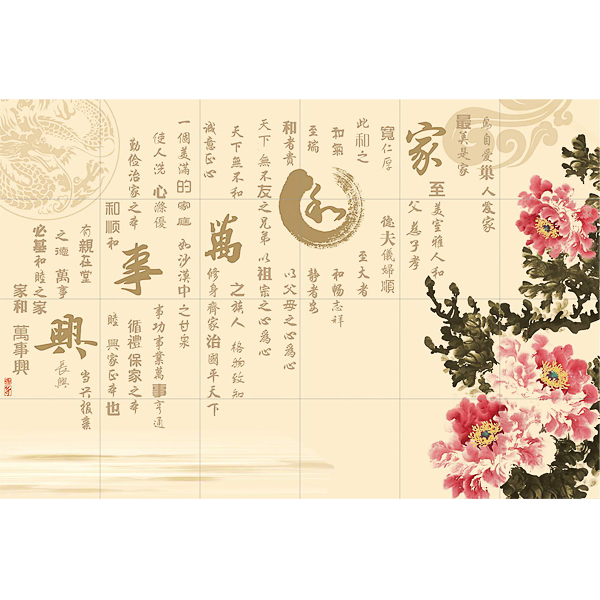 為自愛與人愛家
最美是家
家至美室雅人和
父慈子孝
寬仁厚
德夫儀婦順
此和之
至大者
和氣
和暢志祥
至瑞
靜者安
和
和者貴
以父母之心為心
天下無不友之兄弟
以祖宗之心為心
天下無不和
之族人
格物致知
誠意正心
萬
修身齊家治國平天下
一個美滿的家庭
如沙漠中之甘泉
使人洗心滌優
事功事業萬事亨通
勤儉治家之本
循禮保家之本
和順和
事
睦興家正本也
有親在堂
興
長興
當六報業
之德萬事
必基和睦之家
家和萬事興